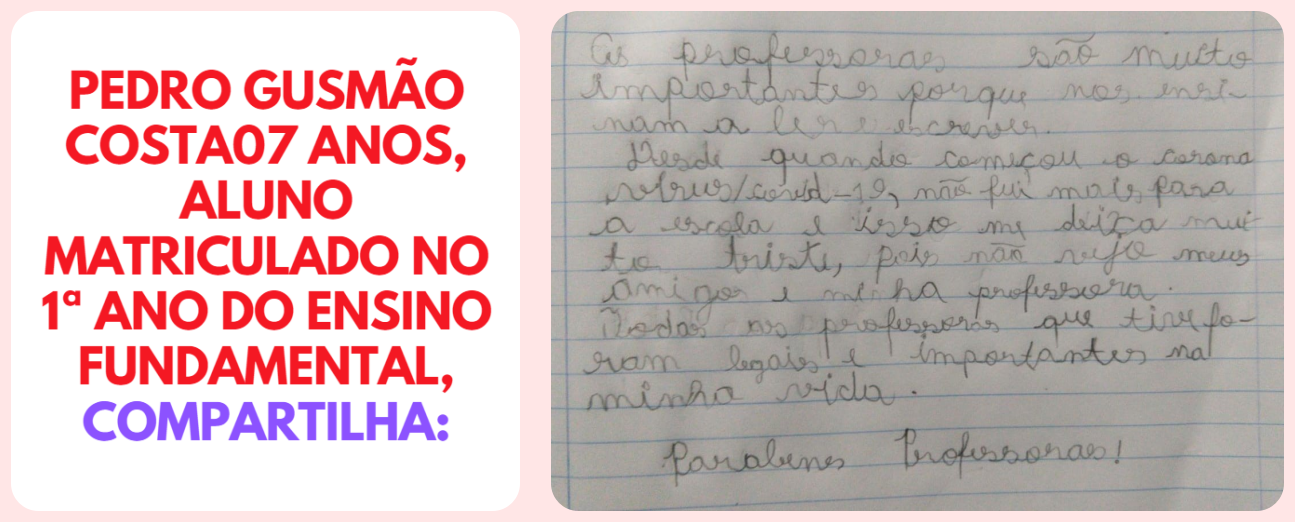 PEDRO GUSMÃO
COSTA07 ANOS,
ALUNO
MATRICULADO NO
1ª ANO DO ENSINO
FUNDAMENTAL,
COMPARTILHA:
As professoras são muito
importantes porque nos ensi-
nam a ler e escrever.
Desde quando começou o corona
virus/covid-19, não fui mais para
a escola e isso me deixa mui-
to triste, pois não vejo meus
amigos e minha professora.
Todas as professoras que tive fo-
ram legais e importantes na
minha vida.
Parabens Professoras!